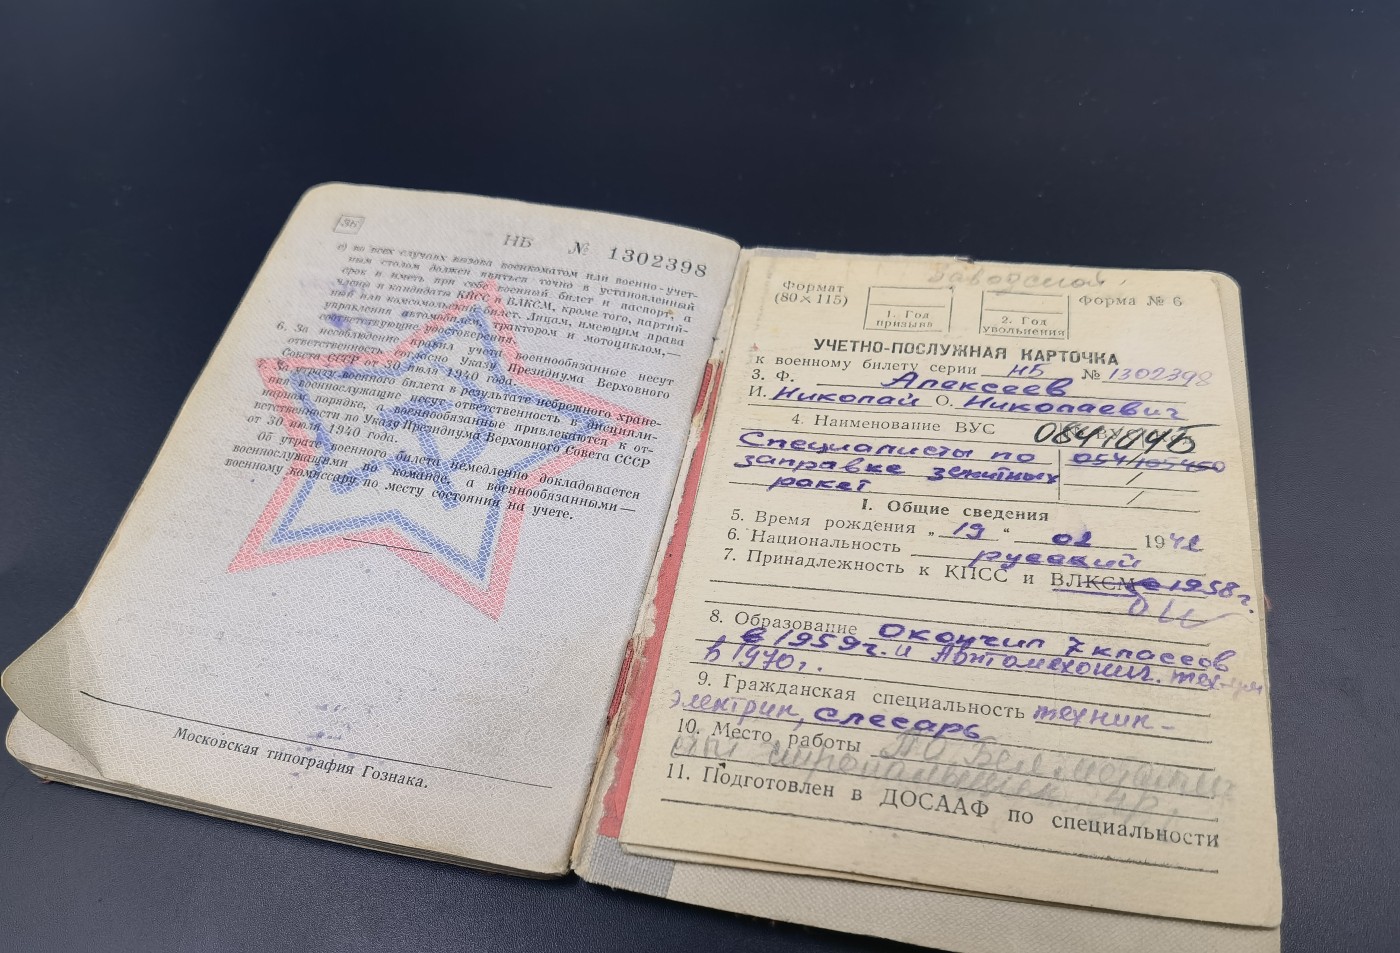 НБ № 1302398
е) во всех случаях вызова военкоматом или военно-учет-
ным столом должен явиться точно в установленный
срок и иметь при себе военный билет и паспорт, а
члены и кандидаты КПСС и ВЛКСМ, кроме того, партий-
ный или комсомольский билет. Лицам, имеющим права
управления автомобилем, трактором и мотоциклом,—
соответствующие удостоверения.
6. За несоблюдение правил учета военнообязанные несут
ответственность согласно Указу Президиума Верховного
Совета СССР от 30 июля 1940 года.
За утрату военного билета в результате небрежного хране-
ния военнослужащие несут ответственность в дисципли-
нарном порядке, а военнообязанные привлекаются к от-
ветственности по Указу Президиума Верховного Совета СССР
от 30 июля 1940 года.
Об утрате военного билета немедленно докладывается
военнослужащими по команде, а военнообязанными —
военному комиссару по месту состояния на учете.
Московская типография Гознака.
Заводской
Формат
(80×115)
1. Год
призыва
2. Год
увольнения
Форма № 6
УЧЕТНО-ПОСЛУЖНАЯ КАРТОЧКА
к военному билету серии НБ № 1302398
3. Ф. Алексеев
И. Николай О. Николаевич
4. Наименование ВУС
Специалисты по
заправке зенитных
ракет
I. Общие сведения
5. Время рождения „19“ 02 1942
6. Национальность русский
7. Принадлежность к КПСС и ВЛКСМ с 1958г.
8. Образование Окончил 7 классов
в 1959г. и Автомеханич. тех-ум
в 1970г.
9. Гражданская специальность техник-
электрик, слесарь
10. Место работы ПО
11. Подготовлен в ДОСААФ по специальности